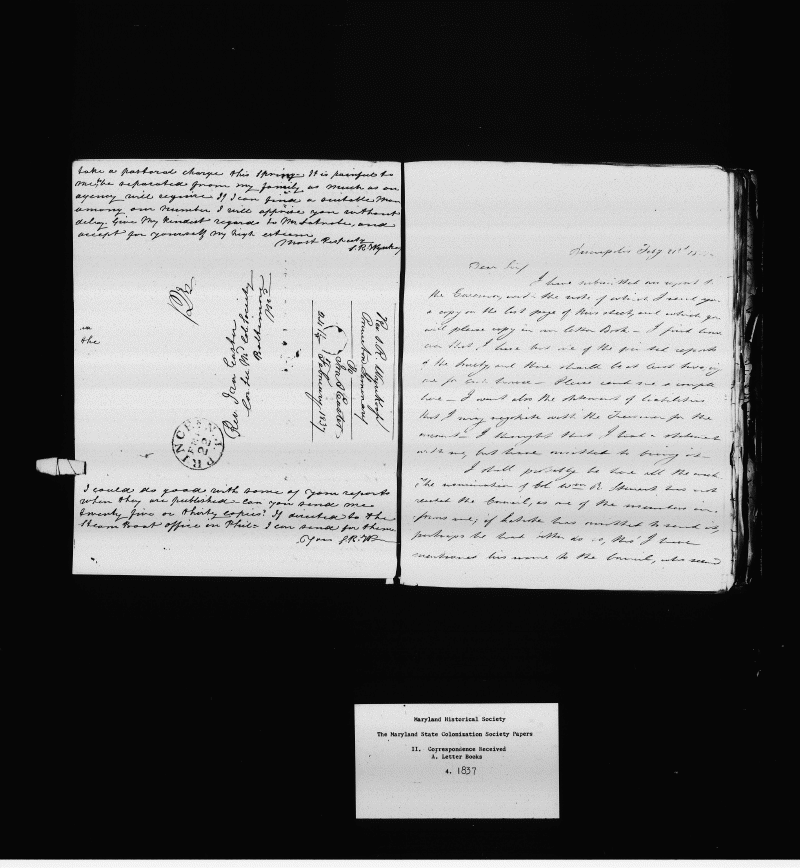 take a pastoral charge this Spring. It is painful to
me to be separated from my family as much as an
agency will require. If I can find a suitable man
among our number I will apprise you without
delay. Give my kindest regard to Mr. Latrobe, and
accept for yourself my high esteem
Most Respecty
S.R. Wynkoop
the
Rev Ira Easter
Cor Sec Md Col Society
Baltimore
Md
PRINCETON N.J.
FEB
22
Rev S R Wynkoop
Princeton
To
Ira A Easter
February 1837
I could do good with some of your reports
when they are published - can you send me
twenty five or thirty copies? If directed to the
Steam Boat office in Phil- I can send for them
Yours S.R.W
Annapolis Feby 21st
Dear Sir
I have submitted our report to
the Governor, with the note of which I send you
a copy on the last page of this sheet, and which you
will please copy in our Letter Book - I find however
that I have but one of the printed reports
of the Society and there should be at least two,
one for each house - Please send me a couple
here - I want also the statement of liabilities
that I may negotiate with the Treasurer for the
amount - I thought that I had a statement
with me, but have omitted to bring it -
I shall probably be here all the week
The nomination of Col Wm R. Stuart has not
reached the Council, as one of the members in-
forms me, if Latrobe has omitted to send it,
perhaps he had better do so, tho' I have
mentioned his name to the Council, who seem
Maryland Historical Society
The Maryland State Colonization Society Papers
II. Correspondence Received
A. Letter Books
4. 1837